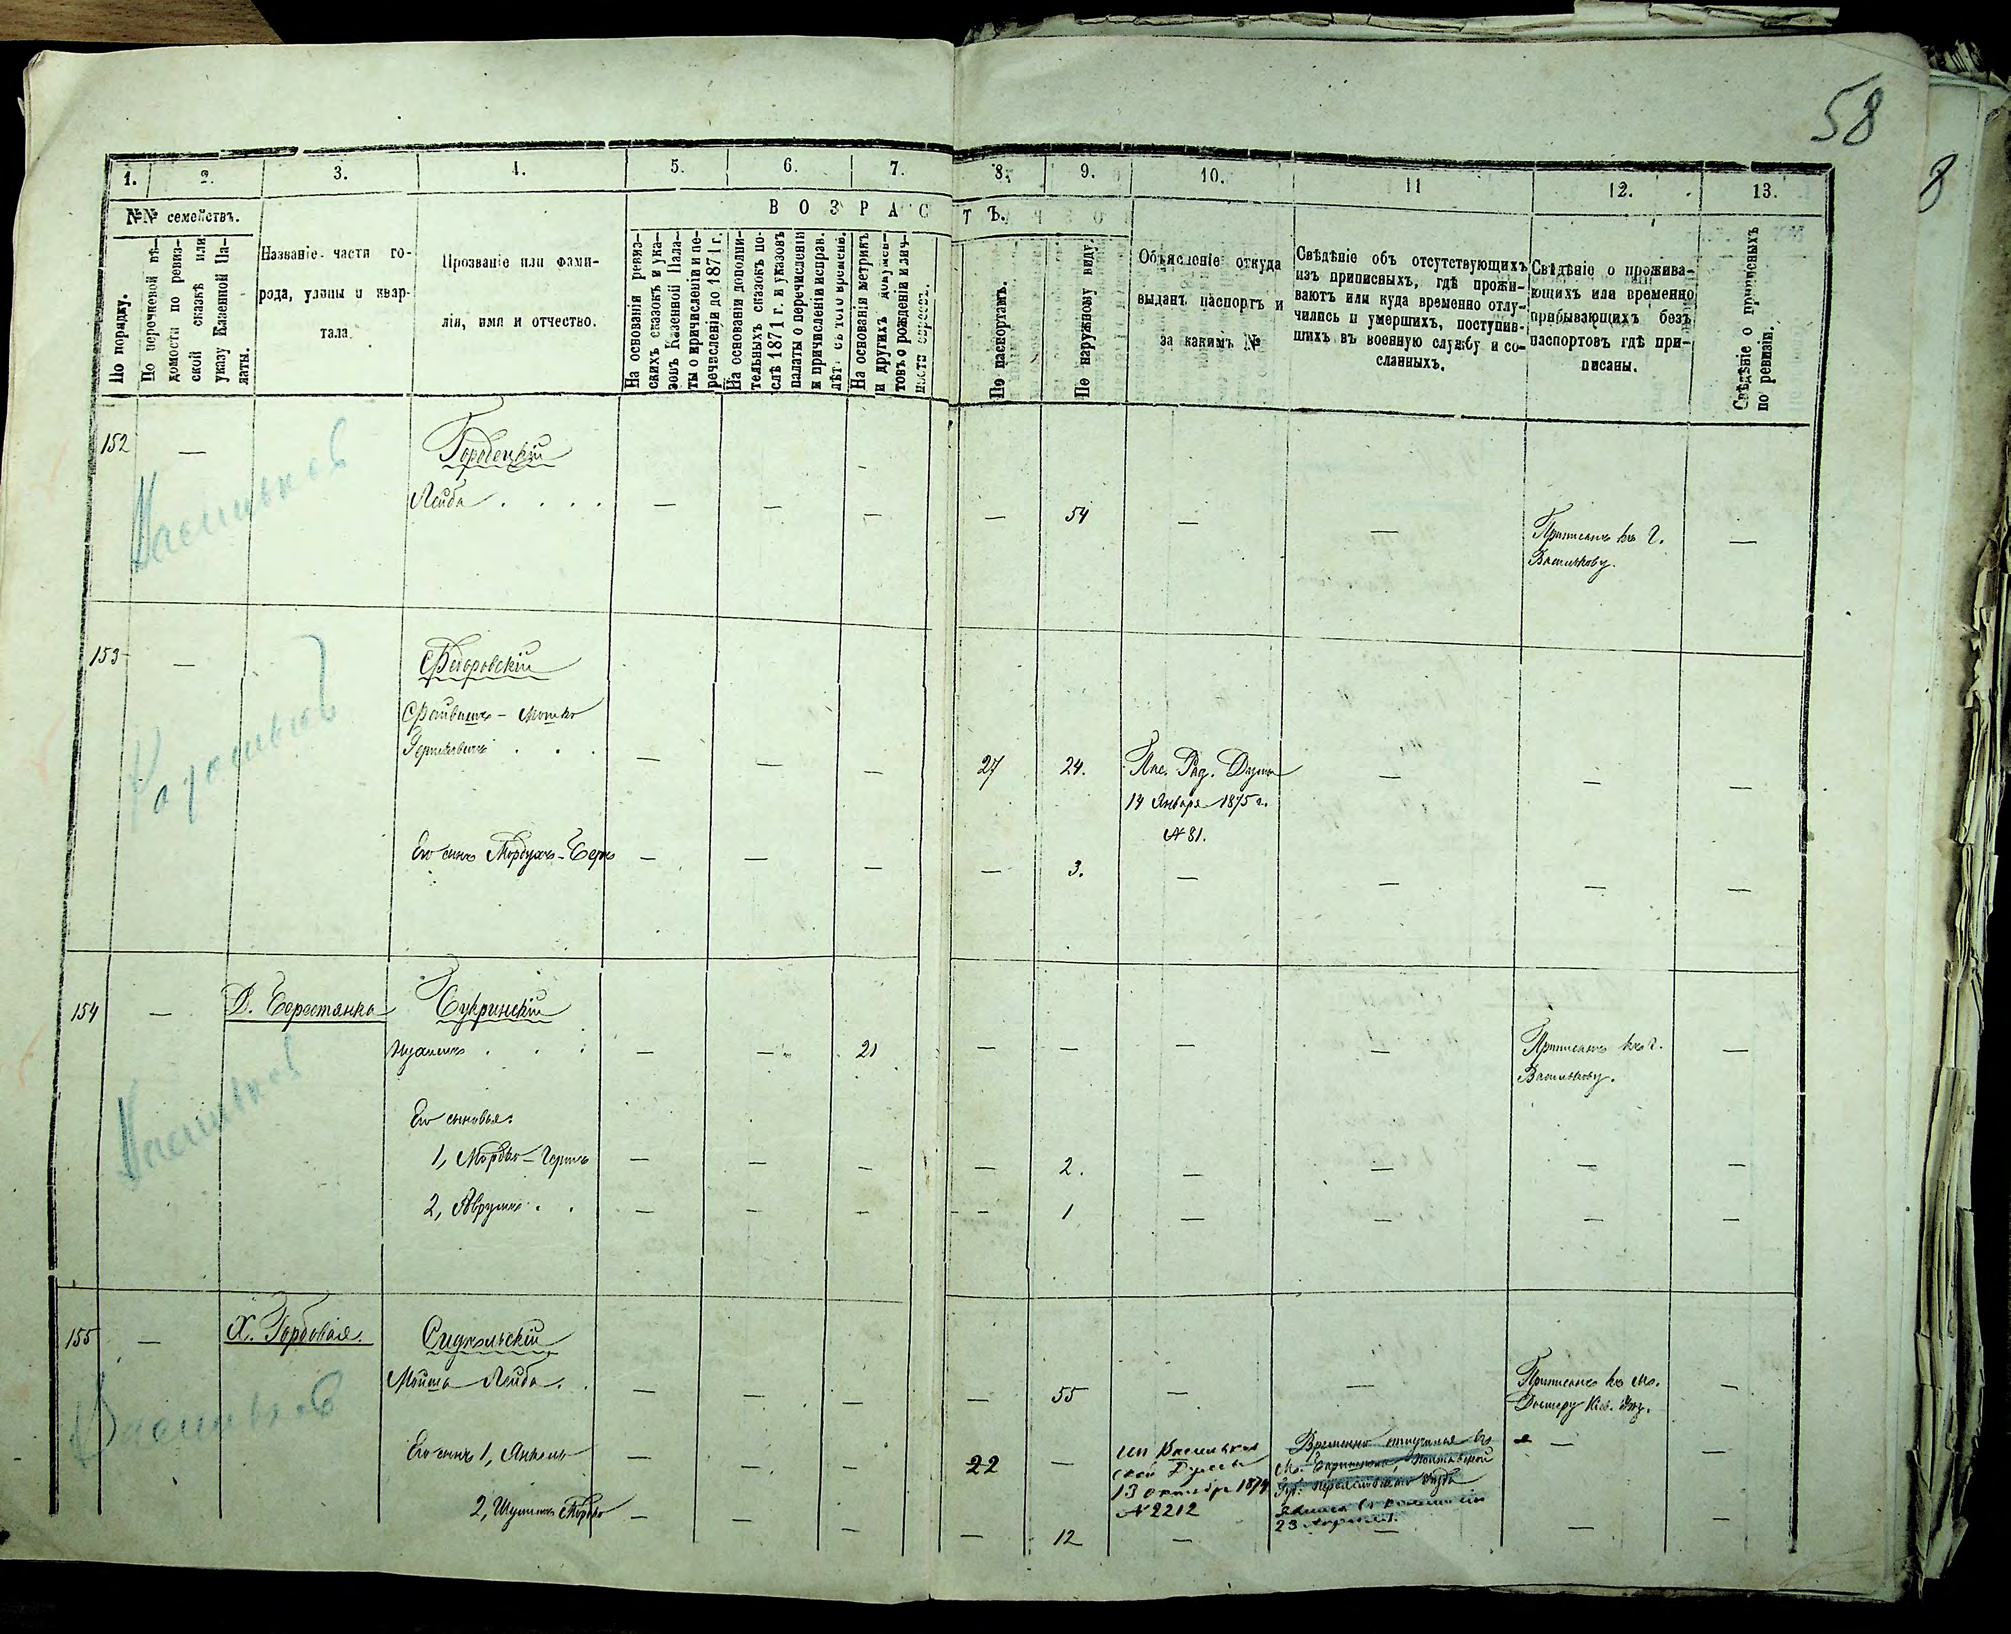 58
8
1. 2. 3. 4. 5. 6. 7. 8. 9. 10. 11 12. 13.
№№ семействъ.
В О З Р А С Т Ъ.
По порядку.
По перечневой вѣ-
домости по ревиз-
ской сказкѣ или
указу Казенной Па-
латы.
Названіе части го-
рода, улицы и квар-
тала.
Прозваніе или фами-
лія, имя и отчество.
На основаніи ревиз-
скихъ сказокъ и ука-
зовъ Казенной Пала-
ты о причисленіи и пе-
речисленіи до 1871 г.
На основаніи дополни-
тельныхъ сказокъ по-
слѣ 1871 г. и указовъ
палаты о перечисленіи
и причисленіи исправ.
лѣт. съ того времени.
На основаніи метрикъ
и другихъ докумен-
товъ о рожденіи и лич-
наго осмотра.
По паспортамъ.
По наружному виду.
Объясленіе откуда
выданъ паспортъ и
за какимъ №
Свѣдѣніе объ отсутствующихъ
изъ приписныхъ, гдѣ прожи-
ваютъ или куда временно отлу-
чились и умершихъ, поступив-
шихъ въ военную службу и со-
сланныхъ.
Свѣдѣніе о прожива-
ющихъ или временно
прибывающихъ безъ
паспортовъ гдѣ при-
писаны.
Свѣдѣніе о приписныхъ
по ревизіи.
152 —
Васильков
Городецкій
Лейба . . . . — — — — 54 — — Приписанъ къ г. —
Василькову.
153 —
Федоровскій
Файвишъ - Мошко
Гершковичъ . . — — — 27 24. — — —
Рад. Думы
14 Января 1875 г.
№ 81.
Его сынъ Мордухъ-Беръ — — — — 3. — — — —
154 — Д. Берестянка Букринскій
. . . — — 21 — — — — Приписанъ къ г. —
Василькову.
Васильков
Его сыновья:
1, Мордко-Гершъ — — — — 2. — — — —
2, Аврумъ . . — — — — 1 — — — —
155 — Х. Горбовая. Сидкольскій
Васильков
Мойша Лейба . . — — — 55 — — Приписанъ къ м. —
Кіев. уѣз.
Его сынъ 1, Янкель — — — 22 — — —
из Васильков
ской Думы
13 октября 1874
№ 2212
Временно отлучился въ
м. Полтавской
губ. уѣзда
23 Апреля
2, — — — — 12 — — — —